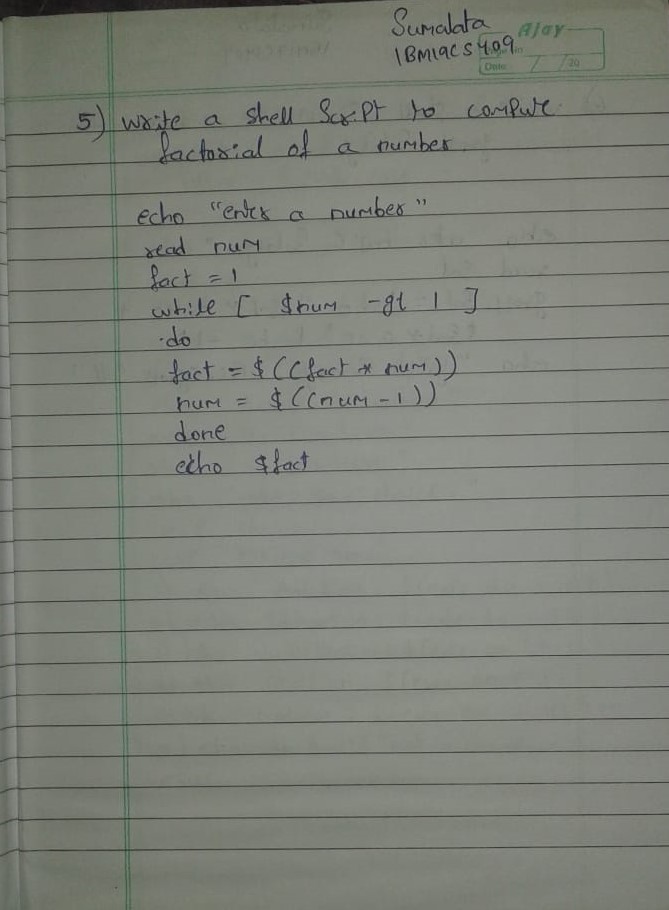 Sumalata
Ajay
1BM19CS409
Date / / 20
5) Write a shell Script to compute
factorial of a number.
echo "enter a number"
read num
fact = 1
while [ $num -gt 1 ]
do
fact = $((fact * num))
num = $((num - 1))
done
echo $fact